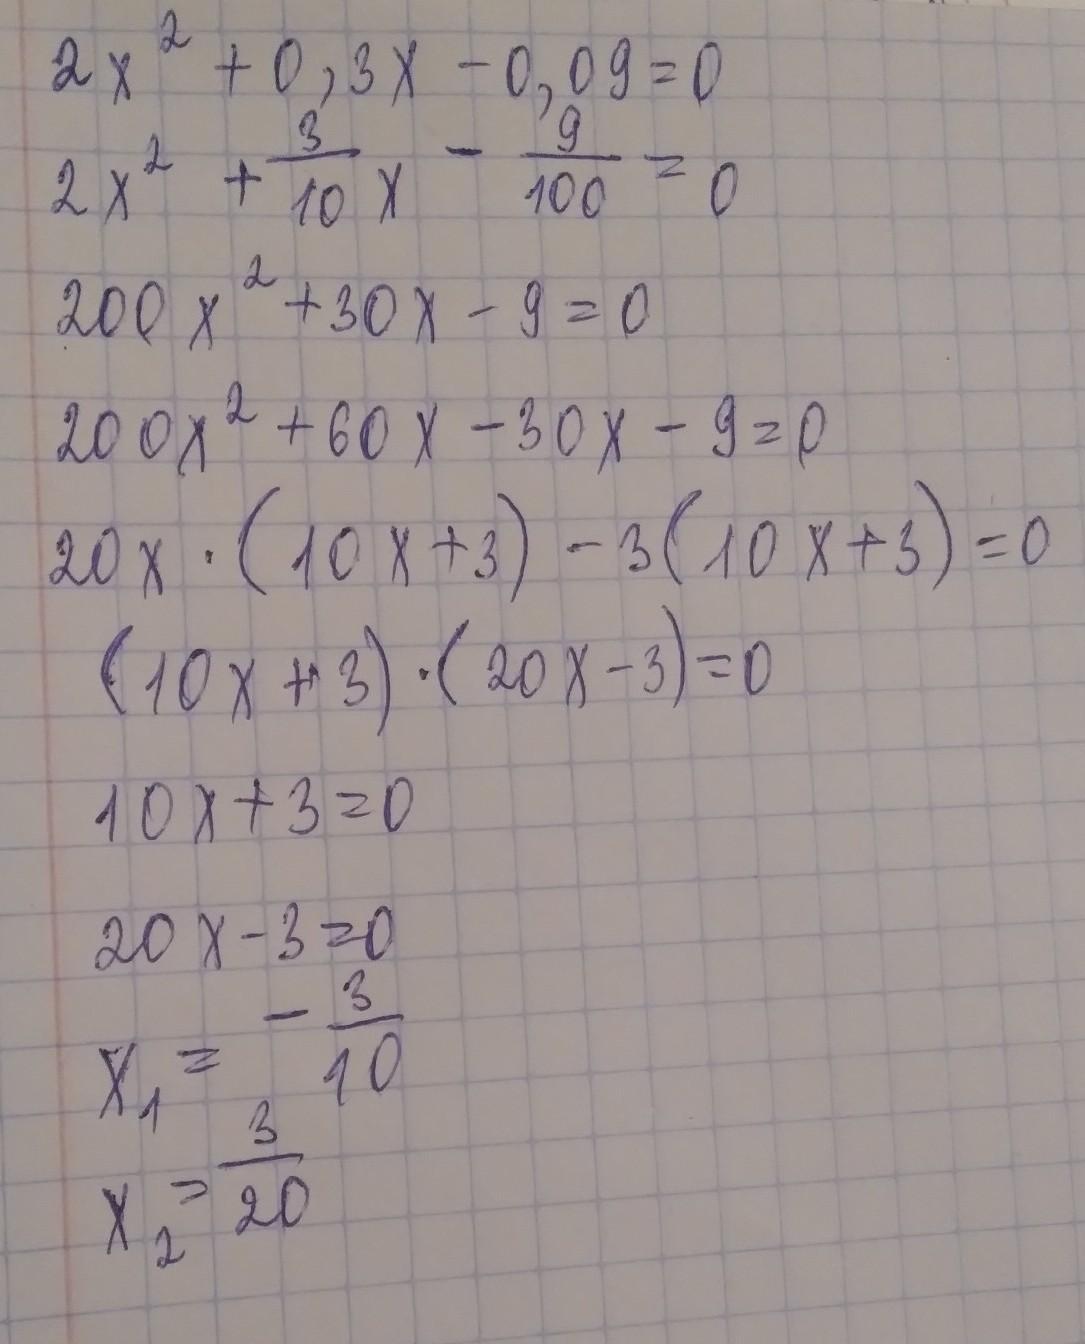 2x² + 0,3x - 0,09 = 0
2x² + 3/10 x - 9/100 = 0
200x² + 30x - 9 = 0
200x² + 60x - 30x - 9 = 0
20x · (10x + 3) - 3(10x + 3) = 0
(10x + 3) · (20x - 3) = 0
10x + 3 = 0
20x - 3 = 0
x₁ = - 3/10
x₂ = 3/20